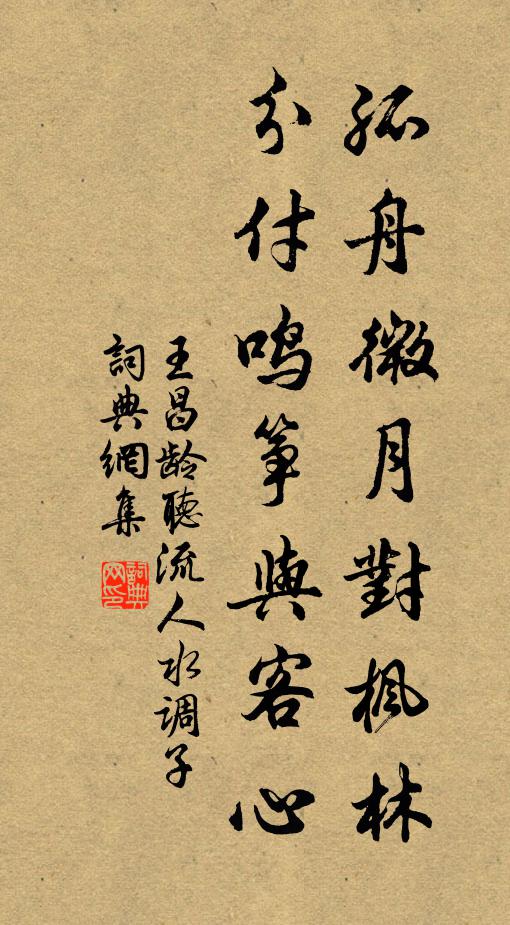 孤舟微月對楓林
分付鳴箏與客心
王昌龄聽流人水调子
詞典網集
詞典網印